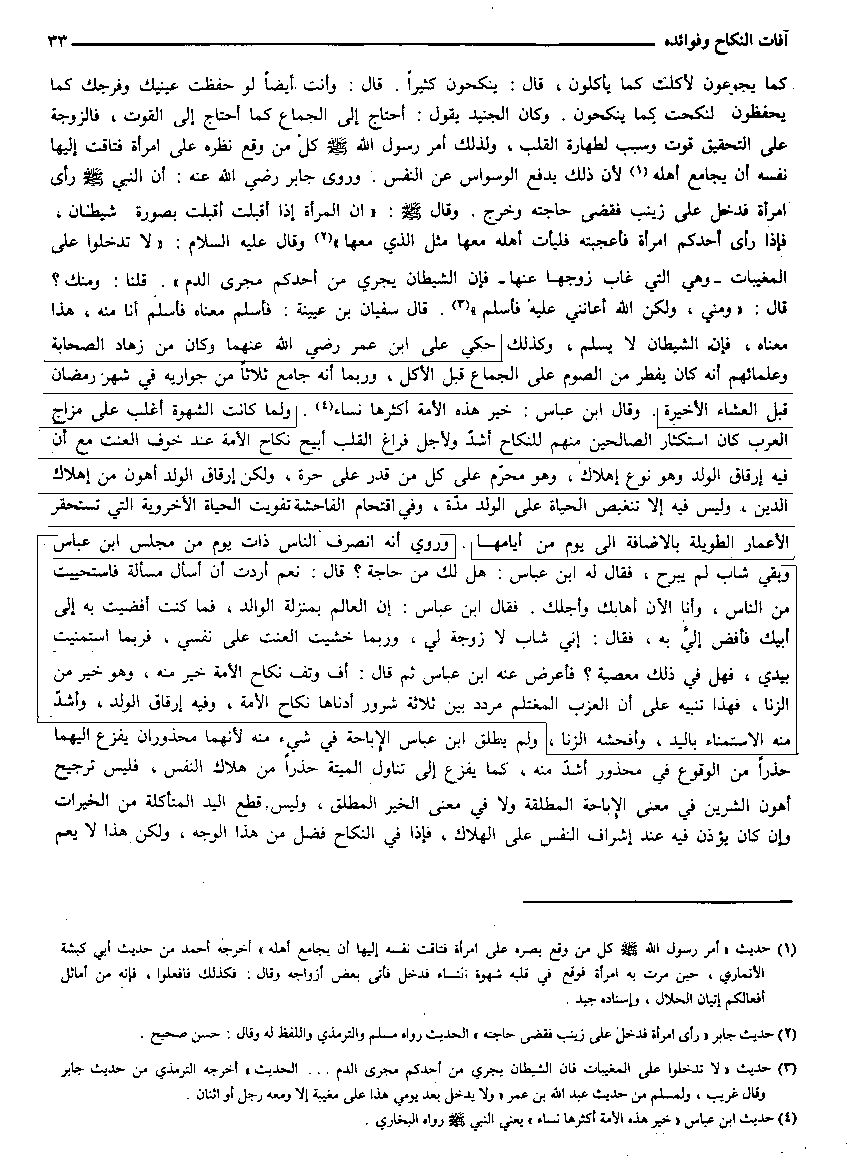 آفات النكاح وفوائده ٣٣
كما يجوعون لأكلت كما يأكلون ، قال : ينكحون كثيراً . قال : وأنت أيضاً لو حفظت عينيك وفرجك كما
يحفظون لنكحت كما ينكحون . وكان الجنيد يقول : أحتاج إلى الجماع كما أحتاج إلى القوت ، فالزوجة
على التحقيق قوت وسبب لطهارة القلب ، ولذلك أمر رسول الله ﷺ كل من وقع نظره على امرأة فتاقت إليها
نفسه أن يجامع أهله (١) لأن ذلك يدفع الوسواس عن النفس . وروى جابر رضي الله عنه : أن النبي ﷺ رأى
امرأة فدخل على زينب فقضى حاجته وخرج . وقال ﷺ : « ان المرأة إذا أقبلت أقبلت بصورة شيطان ،
فإذا رأى أحدكم امرأة فأعجبته فليأت أهله معها مثل الذي معها »(٢) وقال عليه السلام : « لا تدخلوا على
المغيبات ـ وهي التي غاب زوجها عنها ـ فإن الشيطان يجري من أحدكم مجرى الدم » . قلنا : ومنك ؟
قال : « ومني ، ولكن الله أعانني عليه فأسلم »(٣) . قال سفيان بن عيينة : فأسلم معناه فأسلم أنا منه ، هذا
معناه ، فإن الشيطان لا يسلم ، وكذلك حكي على ابن عمر رضي الله عنهما وكان من زهاد الصحابة
وعلمائهم أنه كان يفطر من الصوم على الجماع قبل الأكل ، وربما أنه جامع ثلاثاً من جواريه في شهر رمضان
قبل العشاء الأخيرة . وقال ابن عباس : خير هذه الأمة أكثرها نساء(٤) . ولما كانت الشهوة أغلب على مزاج
العرب كان استكثار الصالحين منهم للنكاح أشدّ ولأجل فراغ القلب أبيح نكاح الأمة عند خوف العنت مع أن
فيه إرقاق الولد وهو نوع إهلاك ، وهو محرّم على كل من قدر على حرة ، ولكن إرقاق الولد أهون من إهلاك
الدين ، وليس فيه إلا تنغيص الحياة على الولد مدّة ، وفي اقتحام الفاحشة تفويت الحياة الأخروية التي تستحقر
الأعمار الطويلة بالاضافة الى يوم من أيامها . وروي أنه انصرف الناس ذات يوم من مجلس ابن عباس
وبقي شاب لم يبرح ، فقال له ابن عباس : هل لك من حاجة ؟ قال : نعم أردت أن أسأل مسألة فاستحييت
من الناس ، وأنا الآن أهابك وأجلك . فقال ابن عباس : إن العالم بمنزلة الوالد ، فما كنت أفضيت به إلى
أبيك فأفض إليَّ به ، فقال : إني شاب لا زوجة لي ، وربما خشيت العنت على نفسي ، فربما استمنيت
بيدي ، فهل في ذلك معصية ؟ فأعرض عنه ابن عباس ثم قال : أف وتف نكاح الأمة خير منه ، وهو خير من
الزنا ، فهذا تنبيه على أن العزب المغتلم مردد بين ثلاثة شرور أدناها نكاح الأمة ، وفيه إرقاق الولد ، وأشدّ
منه الاستمناء باليد ، وأفحشه الزنا ، ولم يطلق ابن عباس الإباحة في شيء منه لأنهما محذوران يفزع اليهما
حذراً من الوقوع في محذور أشدّ منه ، كما يفزع إلى تناول الميتة حذراً من هلاك النفس ، فليس ترجيح
أهون الشرين في معنى الإباحة المطلقة ولا في معنى الخير المطلق ، وليس قطع اليد المتأكلة من الخيرات
وإن كان يؤذن فيه عند إشراف النفس على الهلاك ، فإذا في النكاح فضل من هذا الوجه ، ولكن هذا لا يعم
(١) حديث « أمر رسول الله ﷺ كل من وقع بصره على امرأة فتاقت نفسه إليها أن يجامع أهله » أخرجه أحمد من حديث أبي كبشة
الأنماري ، حين مرت به امرأة فوقع في قلبه شهوة النساء فدخل فأتى بعض أزواجه وقال : فكذلك فافعلوا ، فإنه من أماثل
أفعالكم إتيان الحلال ، وإسناده جيد .
(٢) حديث جابر « رأى امرأة فدخل على زينب فقضى حاجته » الحديث رواه مسلم والترمذي واللفظ له وقال : حسن صحيح .
(٣) حديث « لا تدخلوا على المغيبات فان الشيطان يجري من أحدكم مجرى الدم ... الحديث » أخرجه الترمذي من حديث جابر
وقال غريب ، ولمسلم من حديث عبد الله بن عمر « ولا يدخل بعد يومي هذا على مغيبة إلا ومعه رجل أو اثنان .
(٤) حديث ابن عباس « خير هذه الأمة أكثرها نساء » يعني النبي ﷺ رواه البخاري .